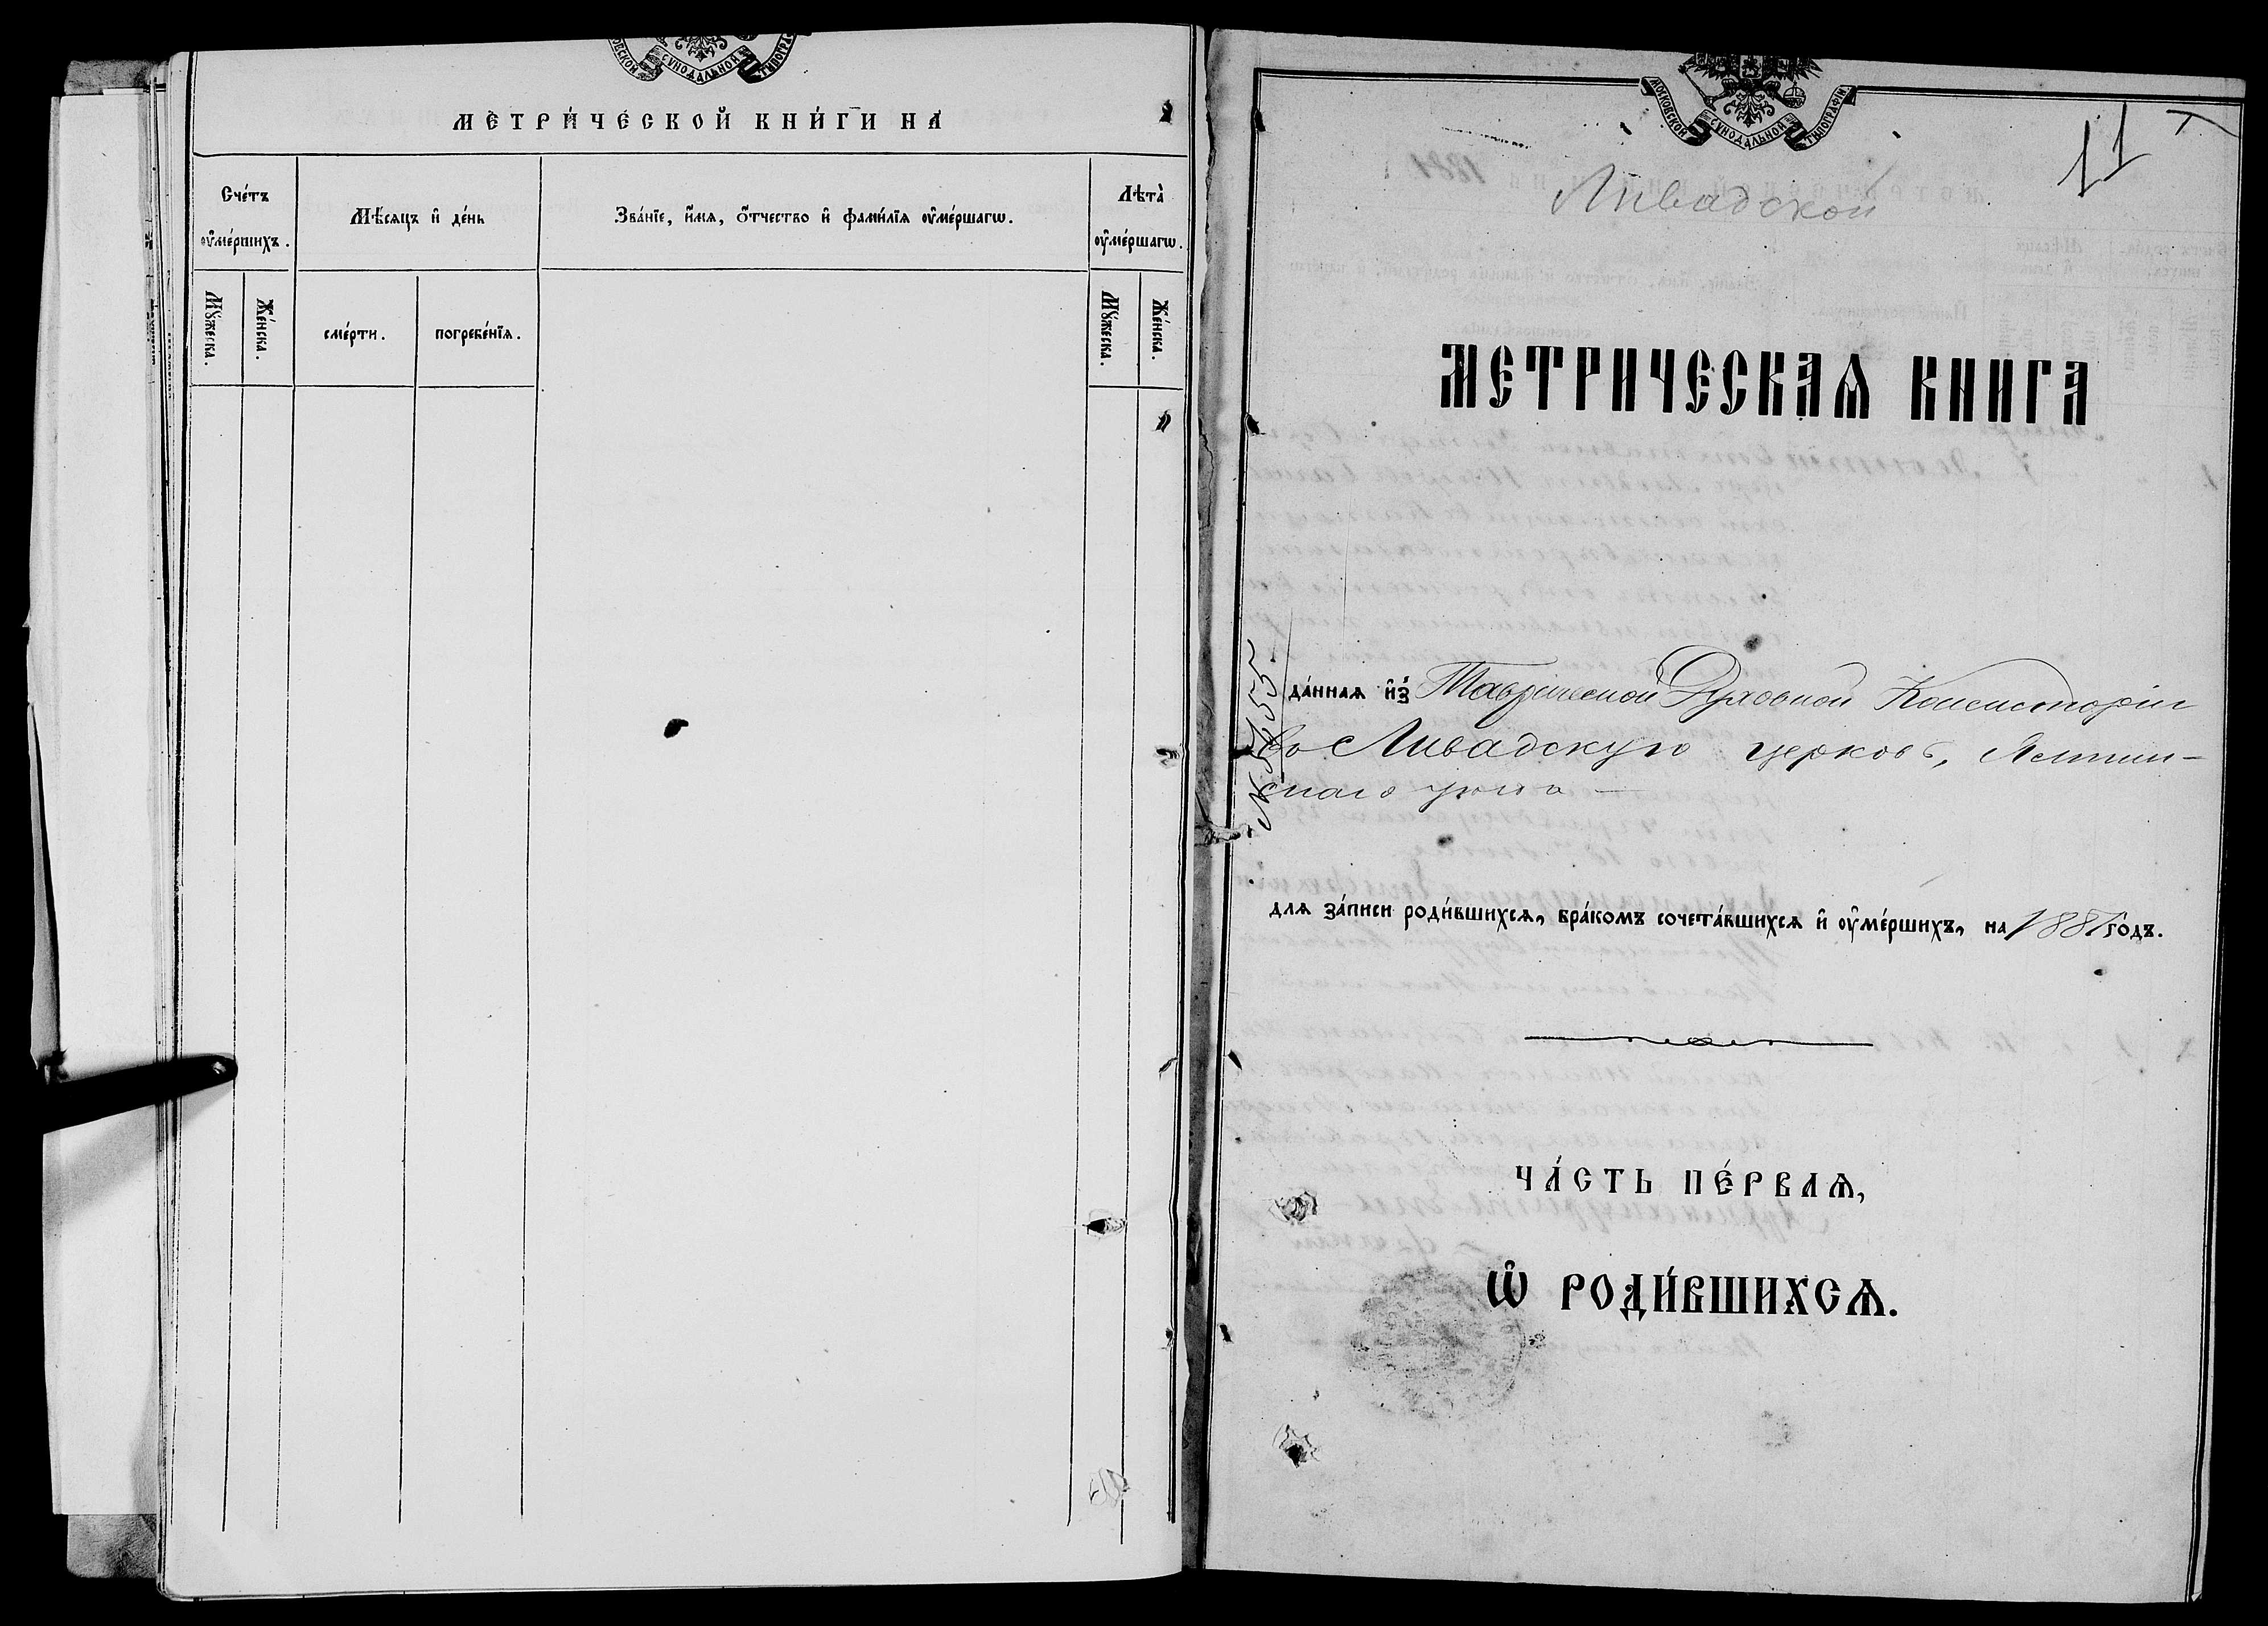 МОСКОВСКОЙ СѴНОДАЛЬНОЙ ТИПОГРАФІИ
МЕТРИ́ЧЕСКОЙ КНИ́ГИ НА
Сче́тъ оу҆ме́ршихъ.
Мѣ́сяцъ и҆ де́нь
Зва́нїе, и҆́мѧ, ѻ҆́тчество и҆ фами́лїѧ оу҆ме́ршагѡ.
Лѣта̀ оу҆ме́ршагѡ.
Мꙋ́жеска.
Же́нска.
сме́рти.
погребе́нїѧ.
Мꙋ́жеска.
Же́нска.
МОСКОВСКОЙ СѴНОДАЛЬНОЙ ТИПОГРАФІИ
11
Ливадской
МЕТРИЧЕСКАѦ КНИГА
да́ннаѧ и҆з̾ Таврической Духовной Консисторіи
во Ливадскую церковь, Ялтин-
скаго уѣзда
для за́писи роди́вшихсѧ, бра́комъ сочета́вшихсѧ и҆ оу҆ме́ршихъ, на 1881 годъ.
ЧА́СТЬ ПЕ́РВАѦ,
Ѡ҆ РОДИ́ВШИХСѦ.